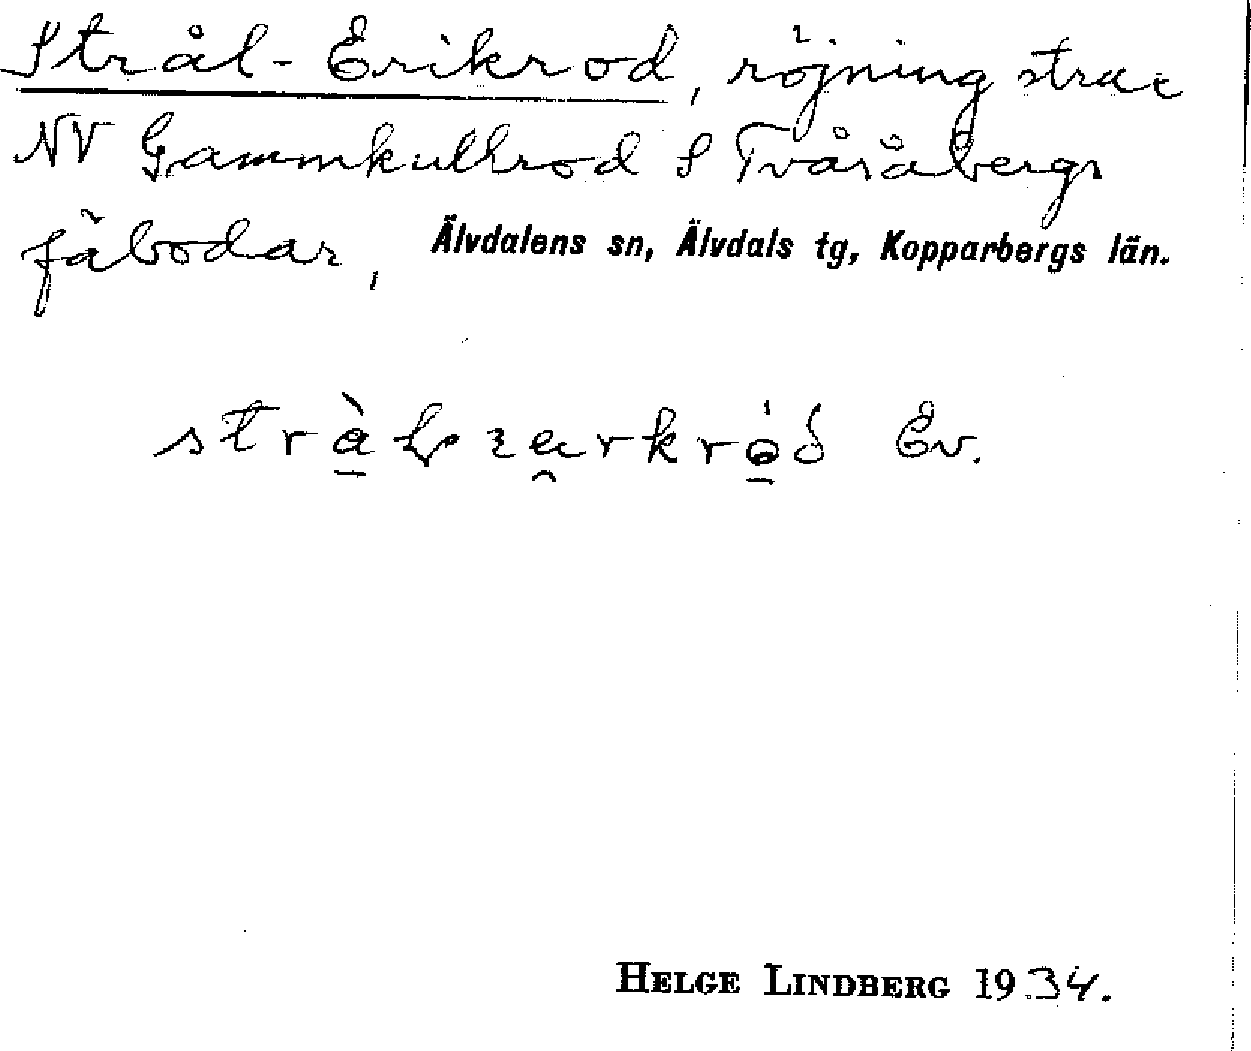 Strål-Erikrod, röjning strax
NV Gammkullrod S Tvåråbergs
fäbodar, Älvdalens sn, Älvdals tg, Kopparbergs län.
Ev.
HELGE LINDBERG 1934.